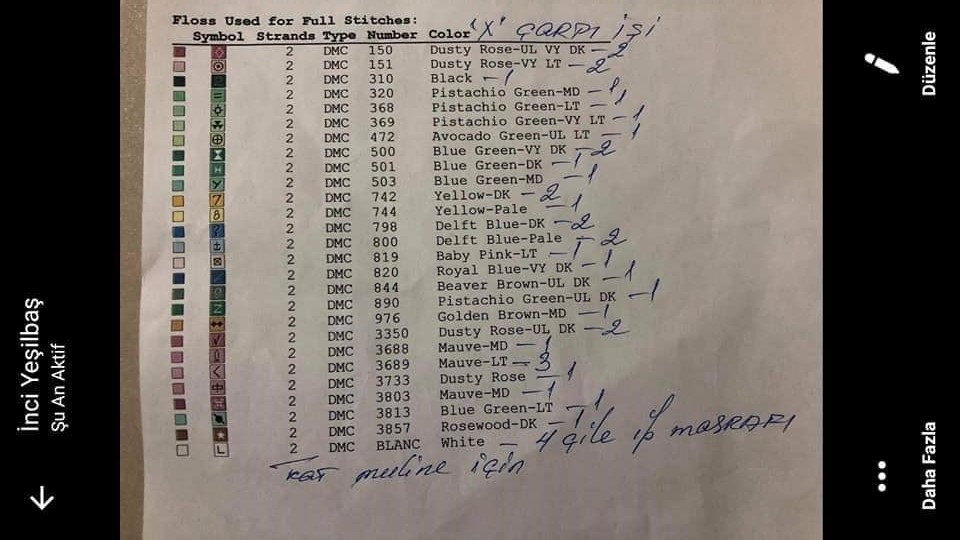 Floss Used for Full Stitches:
'X' ÇARPI İŞİ
Symbol Strands Type Number Color
2 DMC 150 Dusty Rose-UL VY DK - 2
2 DMC 151 Dusty Rose-VY LT - 2
2 DMC 310 Black - 1
2 DMC 320 Pistachio Green-MD - 1
2 DMC 368 Pistachio Green-LT - 1
2 DMC 369 Pistachio Green-VY LT - 1
2 DMC 472 Avocado Green-UL LT - 1
2 DMC 500 Blue Green-VY DK - 2
2 DMC 501 Blue Green-DK - 1
2 DMC 503 Blue Green-MD - 1
2 DMC 742 Yellow-DK - 2
2 DMC 744 Yellow-Pale - 1
2 DMC 798 Delft Blue-DK - 2
2 DMC 800 Delft Blue-Pale - 2
2 DMC 819 Baby Pink-LT - 1
2 DMC 820 Royal Blue-VY DK - 1
2 DMC 844 Beaver Brown-UL DK - 1
2 DMC 890 Pistachio Green-UL DK - 1
2 DMC 976 Golden Brown-MD - 1
2 DMC 3350 Dusty Rose-UL DK - 2
2 DMC 3688 Mauve-MD - 1
2 DMC 3689 Mauve-LT - 3
2 DMC 3733 Dusty Rose - 1
2 DMC 3803 Mauve-MD - 1
2 DMC 3813 Blue Green-LT - 1
2 DMC 3857 Rosewood-DK - 1
2 DMC BLANC White - 4 çile ip MASRAFI
Tkat muline için
İnci Yeşilbaş
Şu An Aktif
Düzenle
Daha Fazla